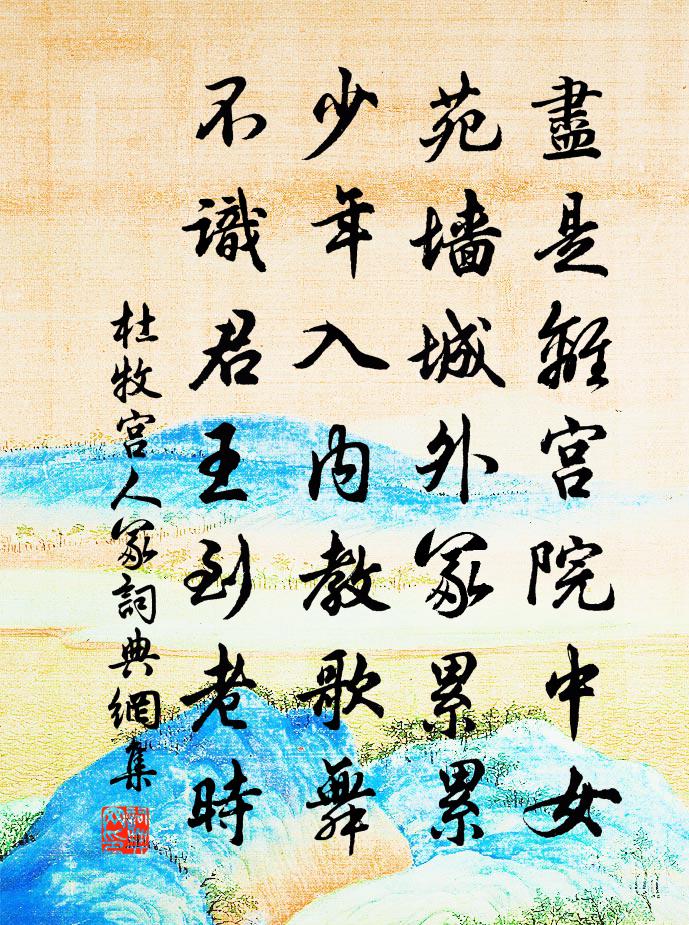 盡是離宮院中女
苑墙城外冢累累
少年入內教歌舞
不識君王到老時
杜牧宮人冢詞典網集